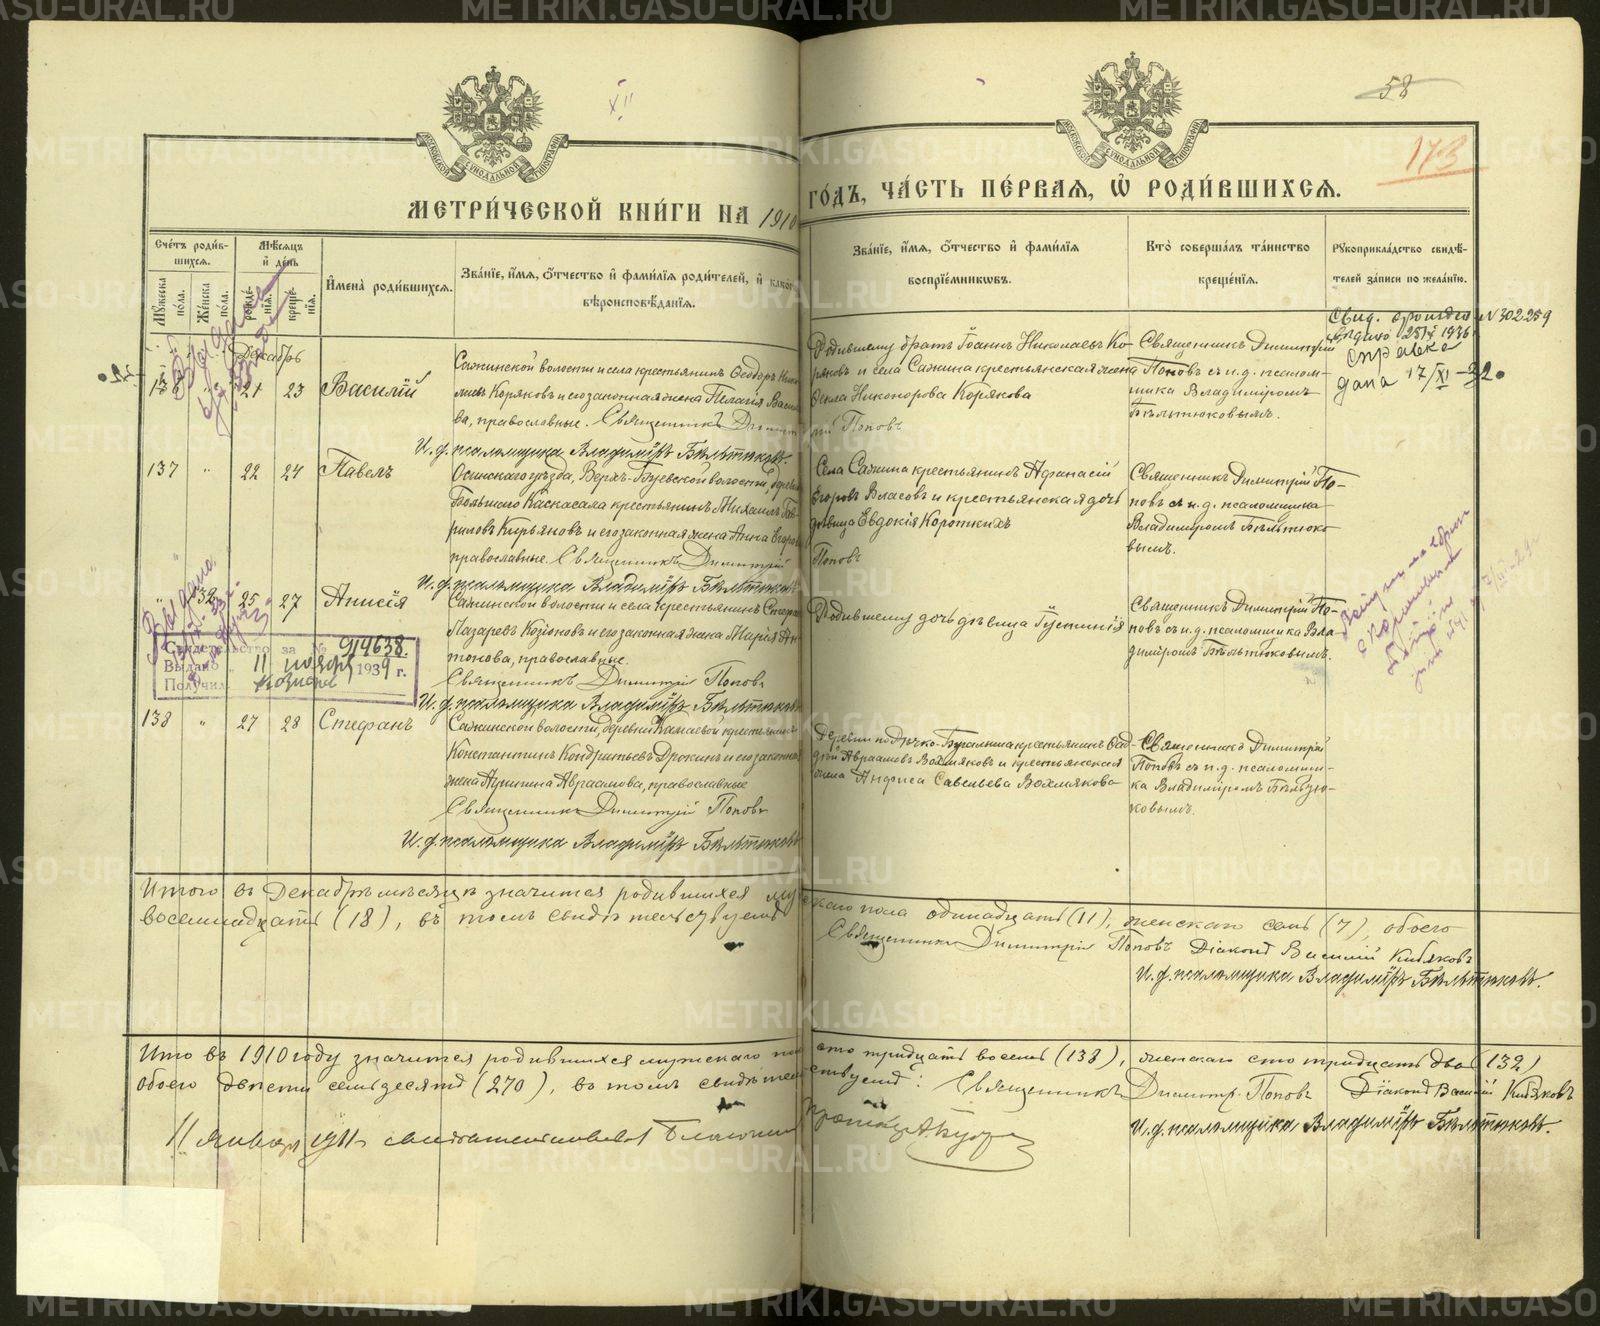 METRIKI.GASO-URAL.RU
XII
58
173
МОСКОВСКОЙ СѴНОДАЛЬНОЙ ТИПОГРАФІИ
МОСКОВСКОЙ СѴНОДАЛЬНОЙ ТИПОГРАФІИ
МЕТРИ́ЧЕСКОЙ КНИ́ГИ НА 1910
ГО́ДЪ, ЧА́СТЬ ПЕ́РВАѦ, Ѽ РОДИ́ВШИХСѦ.
Сче́тъ роди́вшихсѧ.
Мꙋ́жеска по́ла.
Же́нска по́ла.
Мѣ́сѧцъ и҆ де́нь
рожде́нїѧ.
креще́нїѧ.
И҆мена̀ роди́вшихсѧ.
Зва́нїе, и҆́мѧ, ѻ҆́тчество и҆ фами́лїѧ роди́телей, и҆ како́гѡ
вѣроисповѣ́данїѧ.
Зва́нїе, и҆́мѧ, ѻ҆́тчество и҆ фами́лїѧ
воспрїе́мникѡвъ.
Кто̀ соверша́лъ та́инство
креще́нїѧ.
Рꙋкоприкла́дство свидѣ́телей за́писи по жела́нїю.
Декабрь
136 " 21 23 Василій
Сажинской волости и села крестьянинъ Ѳеодоръ Нико-
лаевъ Коряковъ и его законная жена Пелагія Василь-
ева, православные. Священникъ Димитрій Поповъ
И. д. псаломщика Владиміръ Бѣльтюковъ.
Родившему братъ Іоаннъ Николаевъ Ко-
ряковъ и села Сажина крестьянская жена
Ѳекла Никонорова Корякова
Священникъ Димитрій
Поповъ съ и.д. псалом-
щика Владиміромъ
Бѣльтюковымъ.
N 302259
справка
дана 17/XI-32
137 " 22 24 Павелъ
Осинскаго уѣзда, Верхъ-Буевской волости, деревни
Большого Каскасала крестьянинъ Михаилъ Гав-
риловъ Кирьяновъ и его законная жена Анна Егорова
православные. Священникъ Димитрій
Поповъ
И. д. псаломщика Владиміръ Бѣльтюковъ
Села Сажина крестьянинъ Аѳанасій
Егоровъ Власовъ и крестьянская дочь
дѣвица Евдокія Короткихъ
Священникъ Димитрій По-
повъ съ и.д. псаломщика
Владиміромъ Бѣльтюко-
вымъ.
" 132 25 27 Анисія
Сажинской волости и села крестьянинъ Стефанъ
Лазаревъ Козіоновъ и его законная жена Марія Ан-
тонова, православные.
Священникъ Димитрій Поповъ
И. д. псаломщика Владиміръ Бѣльтюковъ
Родившему дочь дѣвица Іустинія
Священникъ Димитрій По-
повъ съ и.д. псаломщика Вла-
диміромъ Бѣльтюковымъ.
Свидетельство за № 914638.
Выдано " 11 " ноября 1939 г.
Получил
138 " 27 28 Стефанъ
Сажинской волости, деревни Канаевой крестьянинъ
Константинъ Кондратьевъ Дрокинъ и его законная
жена Агрипина Авраамова, православные
Священникъ Димитрій Поповъ
И. д. псаломщика Владиміръ Бѣльтюковъ
крестьянинъ
Авраамовъ Вахмяковъ и крестьянская
жена Анфиса Савельева Вахмякова
Священникъ Димитрій
Поповъ съ и.д. псаломщи-
ка Владиміромъ Бѣльтю-
ковымъ.
Итого въ Декабрѣ мѣсяцѣ значится родившихся мужескаго пола одинадцать (11), женскаго семь (7), обоего
восемнадцать (18), въ томъ свидѣтельствуемъ
Священникъ Димитрій Поповъ Діаконъ Василій Кибяковъ
И. д. псаломщика Владиміръ Бѣльтюковъ.
Итого въ 1910 году значится родившихся мужскаго пола сто тридцать восемь (138), женскаго сто тридцать два (132)
обоего двѣсти семьдесятъ (270), въ томъ свидѣтельствуемъ: Священникъ Димитр. Поповъ Діаконъ Василій Кибяковъ
И. д. псаломщика Владиміръ Бѣльтюковъ.
11 января 1911 г.